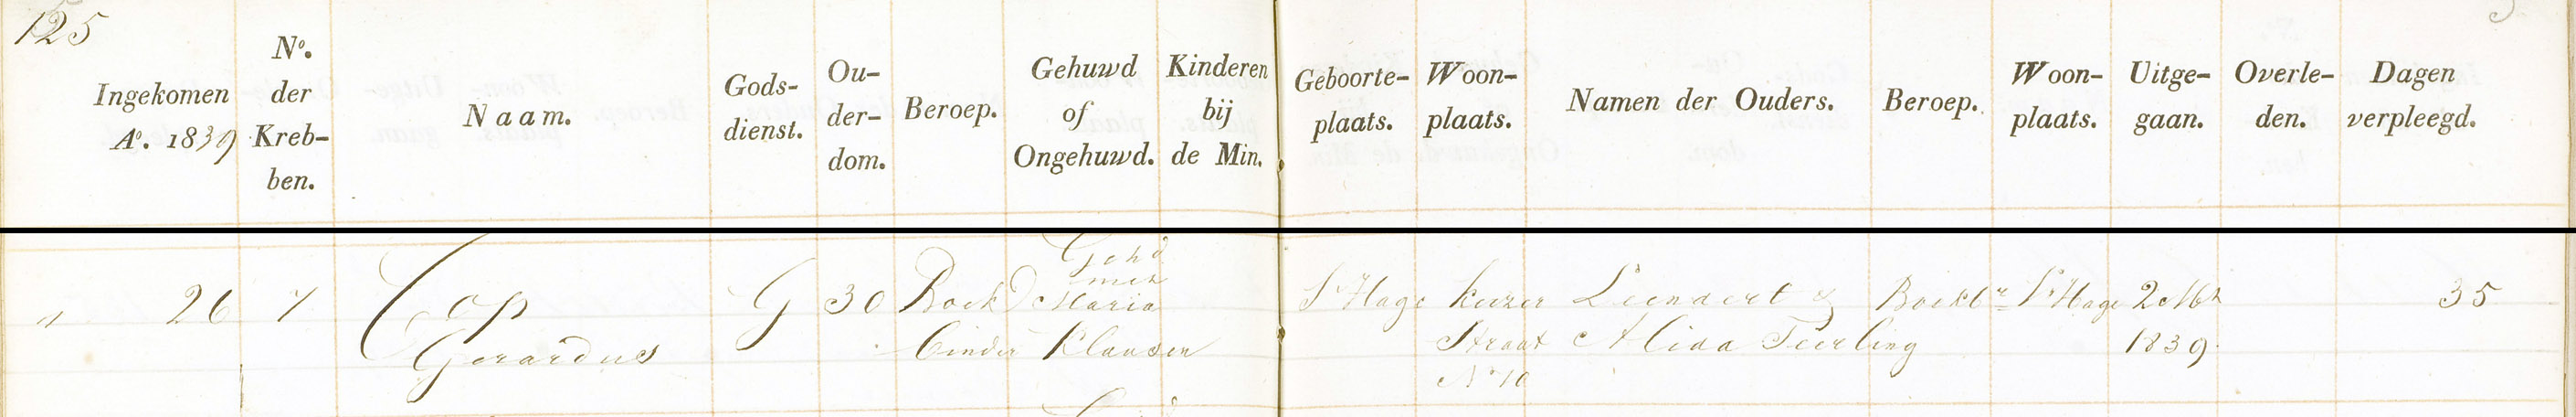 125
Ingekomen
Aº. 1839
Nº.
der
Kreb-
ben.
Naam.
Gods-
dienst.
Ou-
der-
dom.
Beroep.
Gehuwd
of
Ongehuwd.
Kinderen
bij
de Min.
Geboorte-
plaats.
Woon-
plaats.
Namen der Ouders.
Beroep.
Woon-
plaats.
Uitge-
gaan.
Overle-
den.
Dagen
verpleegd.
" 26
7
Cop
Gerardus
G
30
Boek
binder
Gehd
met
Maria
Klausen
S'Hage
Keizer
Straat
Nº 10
Leendert &
Alida Teerling
Boekbr
S'Hage
2 Mt
1839.
35